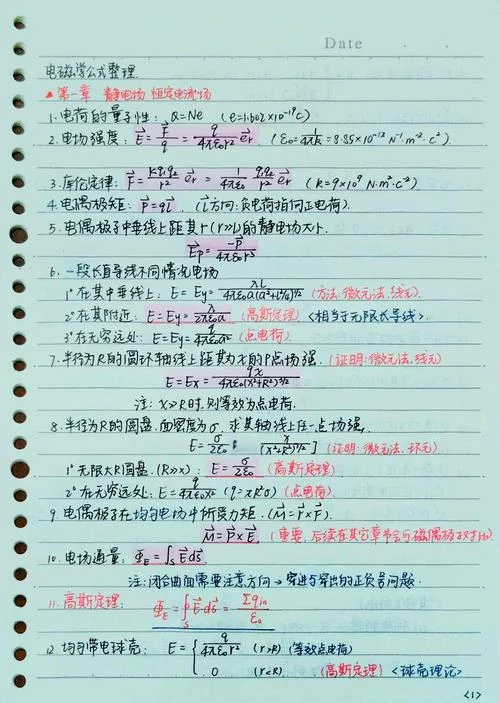 Date
电磁学公式整理.
▲第一章 静电场 恒定电流场
1.电荷的量子性: Q=Ne (e=1.602×10⁻¹⁹C)
2.电场强度: E⃗=F⃗/q=q/4πε₀r² e⃗r (ε₀=1/4πk=8.85×10⁻¹² N⁻¹·m⁻²·C²)
3.库伦定律: F⃗=kq₁q₂/r² e⃗r=1/4πε₀ q₁q₂/r² e⃗r (k=9×10⁹ N·m·c²)
4.电偶极矩: P⃗=ql⃗. (l⃗方向:负电荷指向正电荷).
5.电偶极子中垂线上距其r(r≫l)的静电场大小.
E⃗p=-P⃗/4πε₀r³
6.一段长直导线不同情况电场
1°在其中垂线上: E=Ey=λL/4πε₀a(a²+L²/4)^1/2 (方法:微元法,线元)
2°在其附近: E=Ey=λ/2πε₀a (高斯定理) <相当于无限长导线>
3°在无穷远处: E=Ey=q/4πε₀a² (点电荷).
7.半径为R的圆环轴线上距其为x的P点场强. (证明:微元法,线元)
E=Ex=qx/4πε₀(x²+R²)^3/2
注: x≫R时,则等效为点电荷.
8.半径为R的圆盘.面密度为σ.求其轴线上任一点场强.
E=σ/2ε₀ x/(x²+R²)^1/2] (证明:微元法,环元)
1°无限大圆盘.(R≫x): E=σ/2ε₀ (高斯定理)
2°在无穷远处: E=q/4πε₀x² (q=πR²σ) (点电荷)
9.电偶极子在均匀电场中所受力矩. (M⃗=r⃗×F⃗).
M⃗=P⃗×E⃗. (重要,后续在其它章节会与磁偶极子对比)
10.电场通量: Φ_E=∫s E⃗ds⃗.
注:闭合曲面需要注意方向→穿进与穿出的正负号问题.
11.高斯定理: Φ_E=∮s E⃗ds⃗=Σqin/ε₀
12.均匀带电球壳: E={q/4πε₀r² (r>R) (等效点电荷)
0 (r<R) (高斯定理) <球壳理论>
<1>